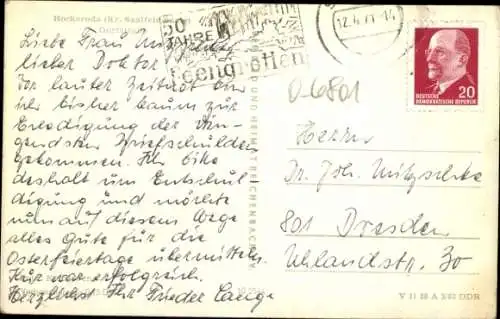 Hockeroda (Kr. Saalfeld
50
JAHRE
Feengrotten
12.4.71-14
20
DEUTSCHE
DEMOKRATISCHE REPUBLIK
Liebe Frau
lieber Doktor!
Vor lauter Zeitnot bin
ich bisher kaum zur
Erledigung der drin-
gendsten Briefschulden
gekommen. Ich bitte
deshalb um Entschul
digung und möchte
nun auf diesem Wege
alles Gute für die
Osterfeiertage übermitteln.
Kur war erfolgreich.
Herzlichst Ihr Frieder Lange
BILD UND HEIMAT REICHENBACH I. V.
06801
Herrn
Dr. Joh. Nitzschke
801 Dresden
Uhlandstr. 30
V 11 28 A 3 82 DDR